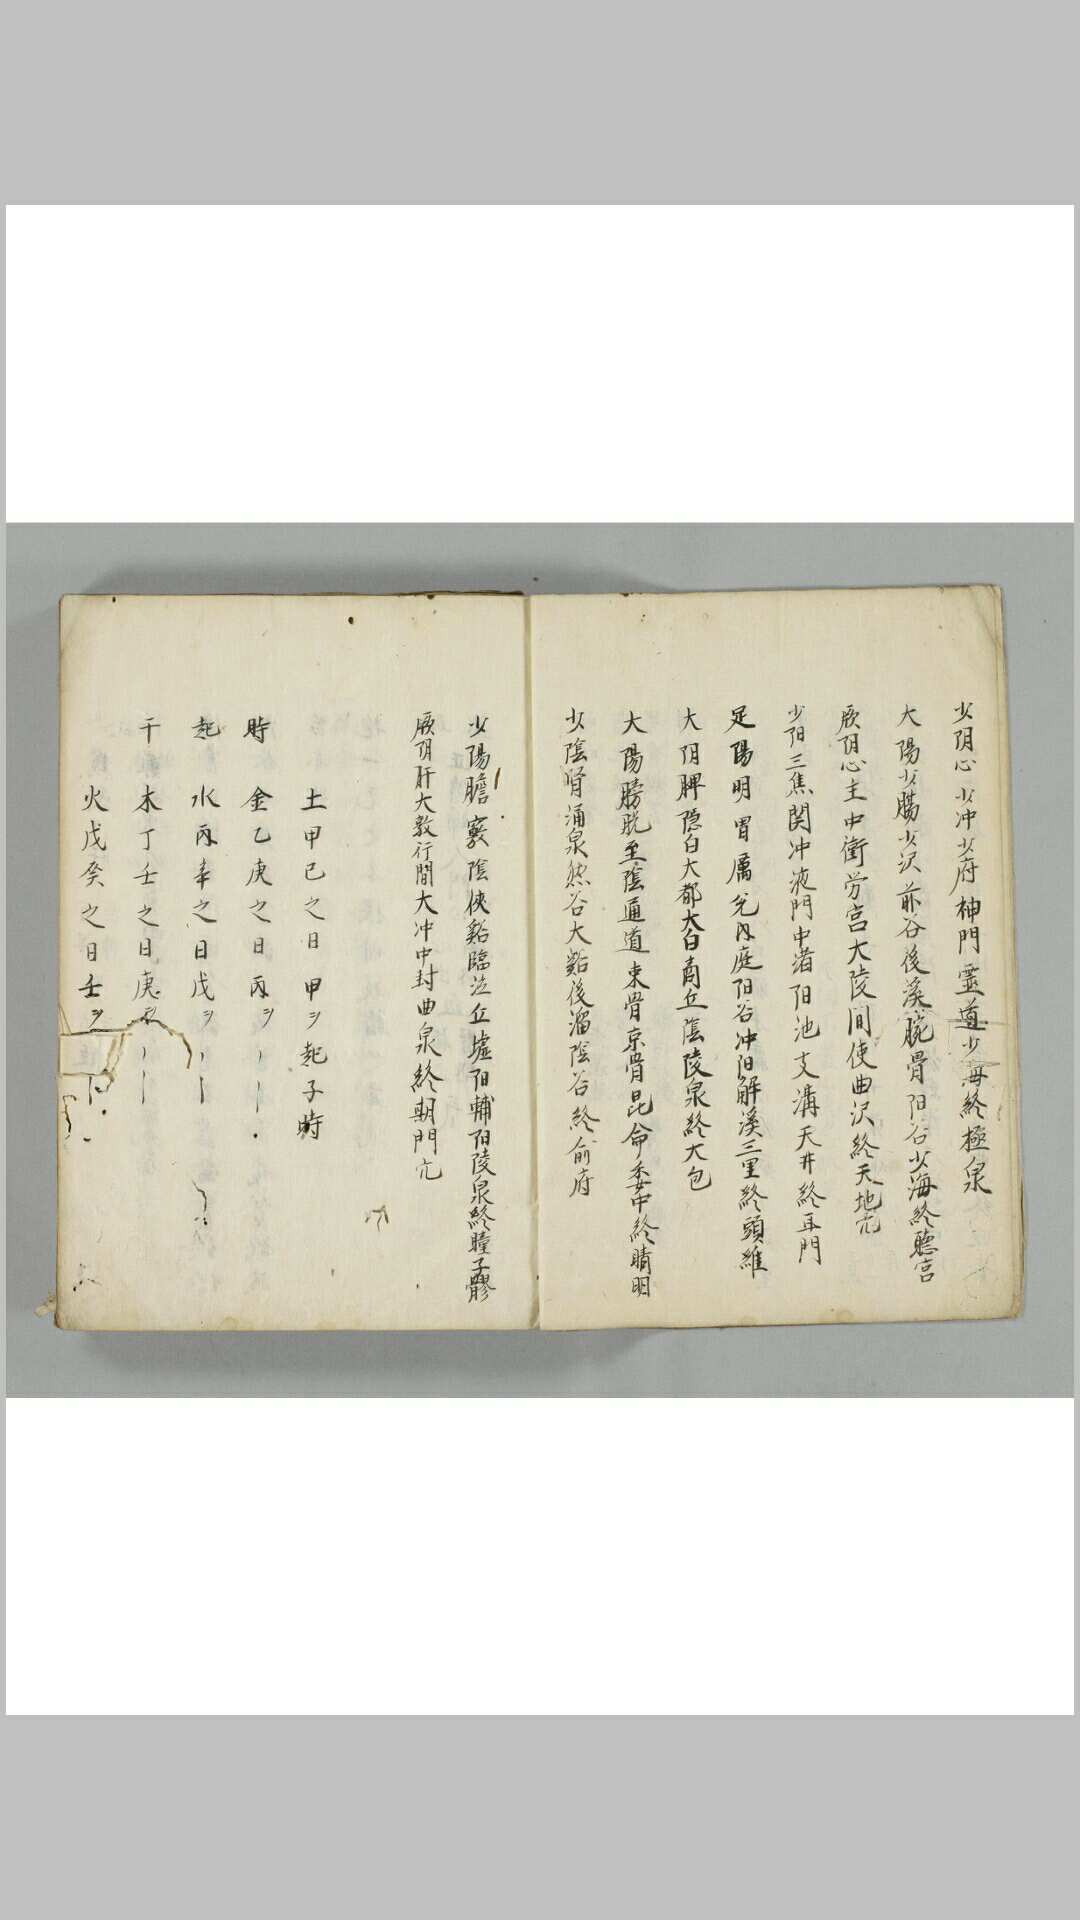 少阴心 少冲少府神門霊道少海終極泉
大陽少腸少沢前谷後溪腕骨阳谷少海終聴宮
厥阴心主中衝労宮大陵間使曲沢終天地穴
少阳三焦関冲液門中渚阳池支溝天井終耳門
足陽明胃厲兌内庭阳谷冲阳解溪三里終頭維
大阴脾隠白大都大白商丘陰陵泉終大包
大陽膀胱至陰通道束骨京骨昆侖委中終睛明
少陰腎涌泉然谷大谿後溜陰谷終俞府
少陽膽竅陰侠谿臨泣丘墟阳輔阳陵泉終瞳子髎
厥阴肝大敦行間大冲中封曲泉終朝門穴
土甲己之日 甲ヲ起子時
時 金乙庚之日丙ヲ
起 水丙辛之日戊ヲ
干 木丁壬之日庚ヲ
火戊癸之日壬ヲ